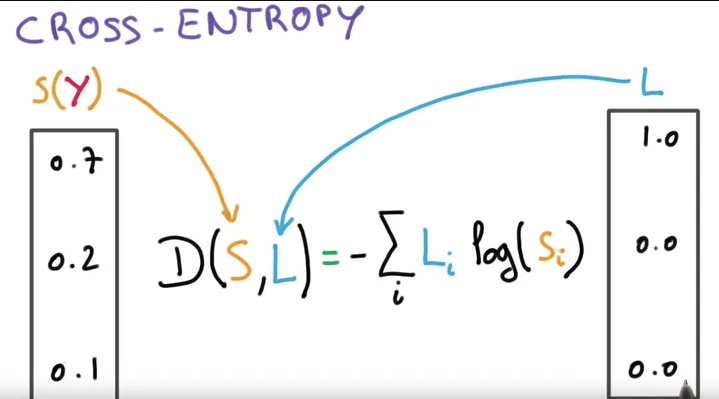 CROSS-ENTROPY
S(Y)
L
0.7
0.2
0.1
D(S,L) = -∑i Li log(Si)
1.0
0.0
0.0